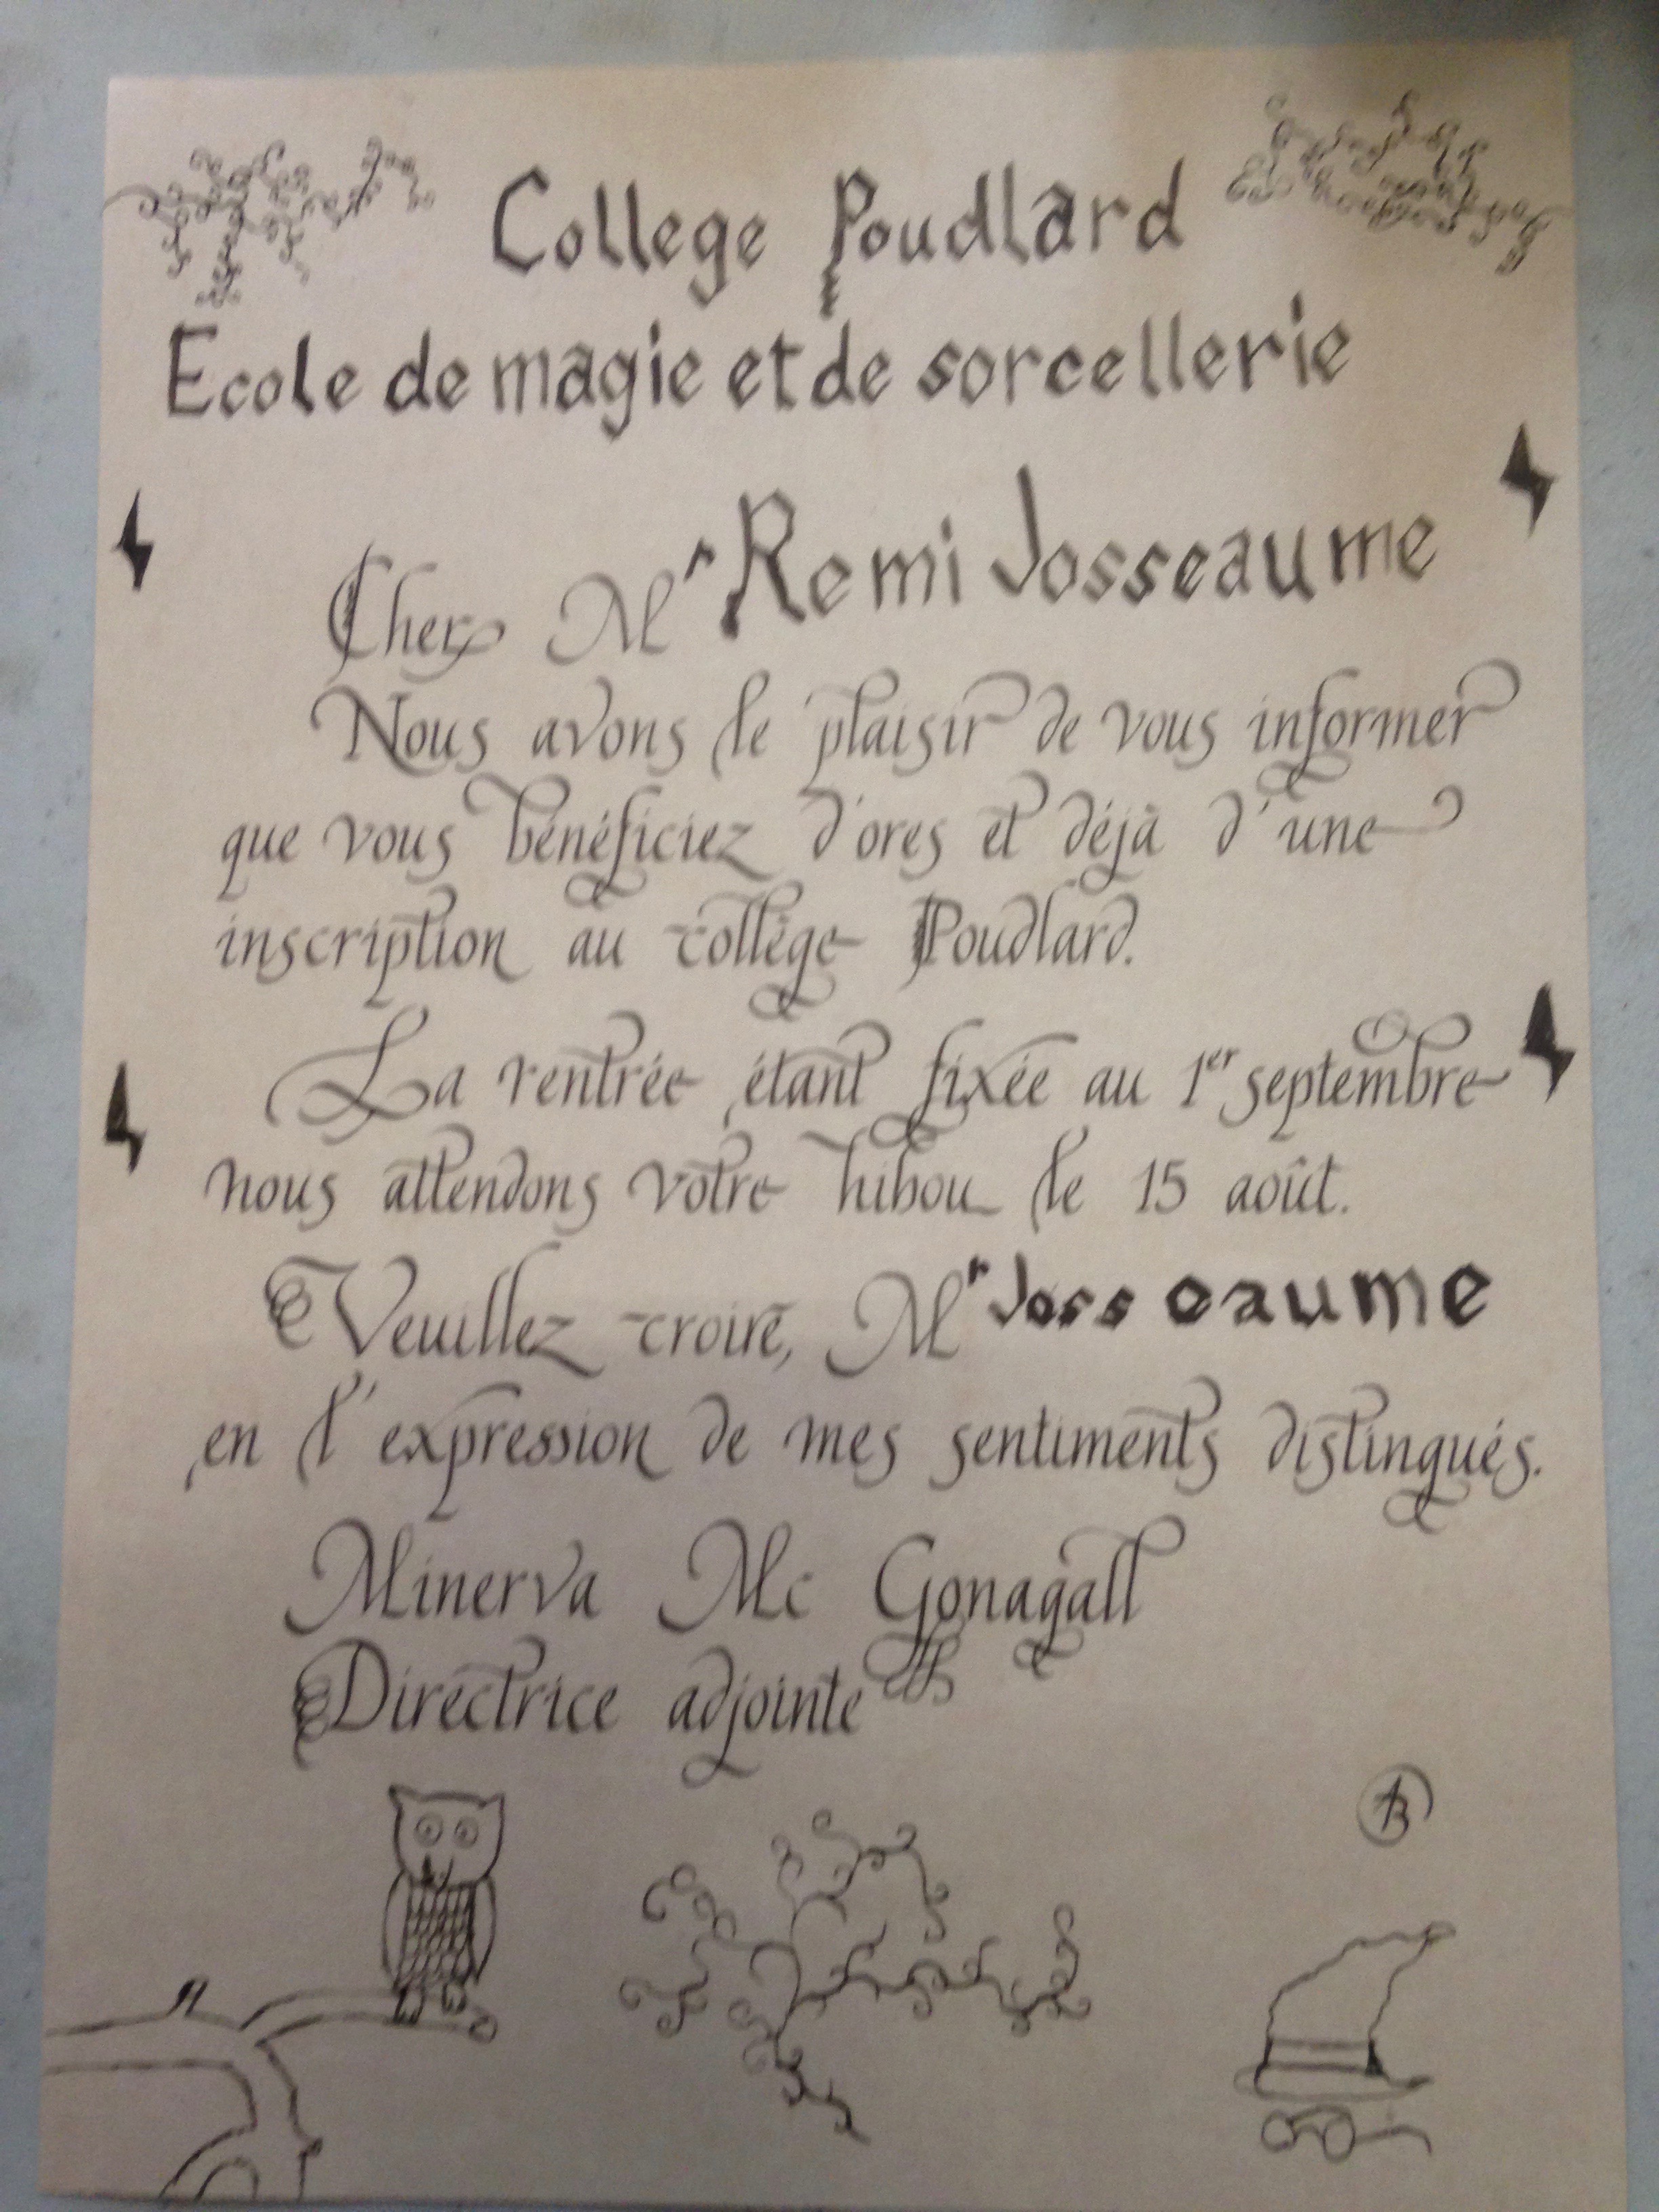 College Poudlard
Ecole de magie et de sorcellerie
Cher Mr Remi Josseaume
Nous avons le plaisir de vous informer
que vous bénéficiez d'ores et déjà d'une
inscription au collège Poudlard.
La rentrée étant fixée au 1er septembre
nous attendons votre hibou le 15 août.
Veuillez croire, Mr Josseaume
en l'expression de mes sentiments distingués.
Minerva Mc Gonagall
Directrice adjointe